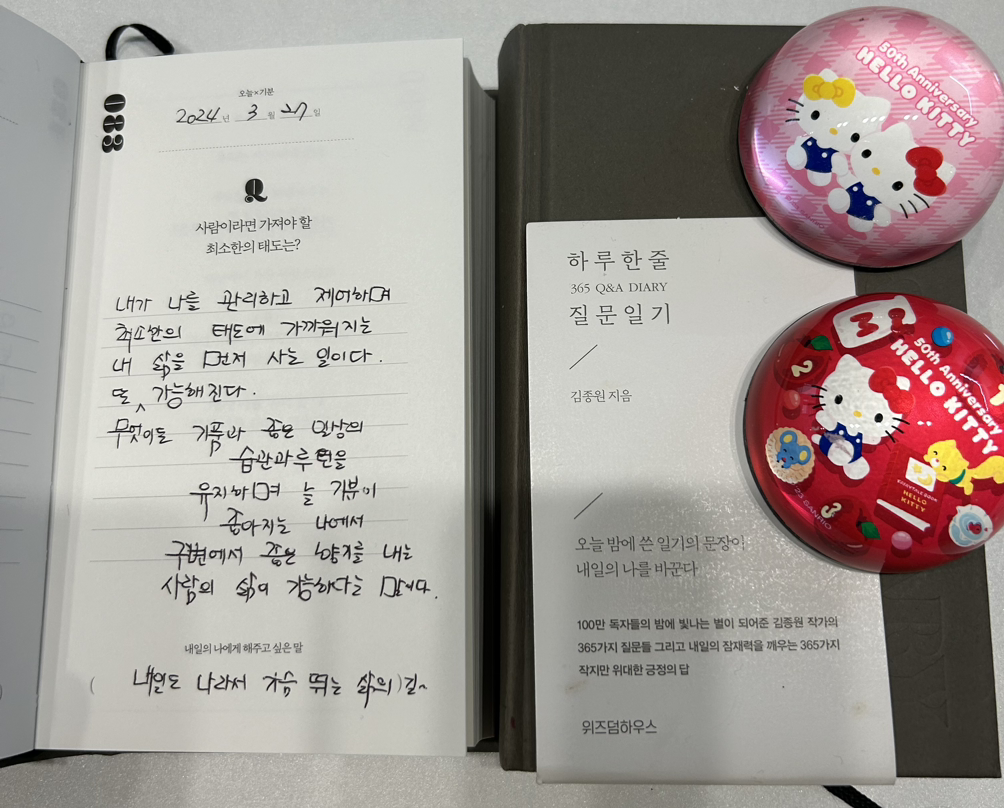 083
오늘×기분
2024년 3월 27일
Q
사람이라면 가져야 할
최소한의 태도는?
내가 나를 관리하고 제어하며
최소한의 태도에 가까워지는
내 삶을 먼저 사는 일이다.
또 가능해진다.
무엇이든 기품과 좋은 일상의
습관과 루틴을
유지하며 늘 기분이
좋아지는 나에서
주변에서 좋은 향기를 내는
사람의 삶이 가능하다는 말이다.
내일의 나에게 해주고 싶은 말
( 내일도 나라서 가슴 뛰는 삶의) 길~
하루 한 줄
365 Q&A DIARY
질문 일기
김종원 지음
오늘 밤에 쓴 일기의 문장이
내일의 나를 바꾼다
100만 독자들의 밤에 빛나는 별이 되어준 김종원 작가의
365가지 질문들 그리고 내일의 잠재력을 깨우는 365가지
작지만 위대한 긍정의 답
위즈덤하우스
50th Anniversary
HELLO KITTY
50th Anniversary
HELLO KITTY
2
1
3
FAIRYTALE BOOK
HELLO
KITTY
SANRIO